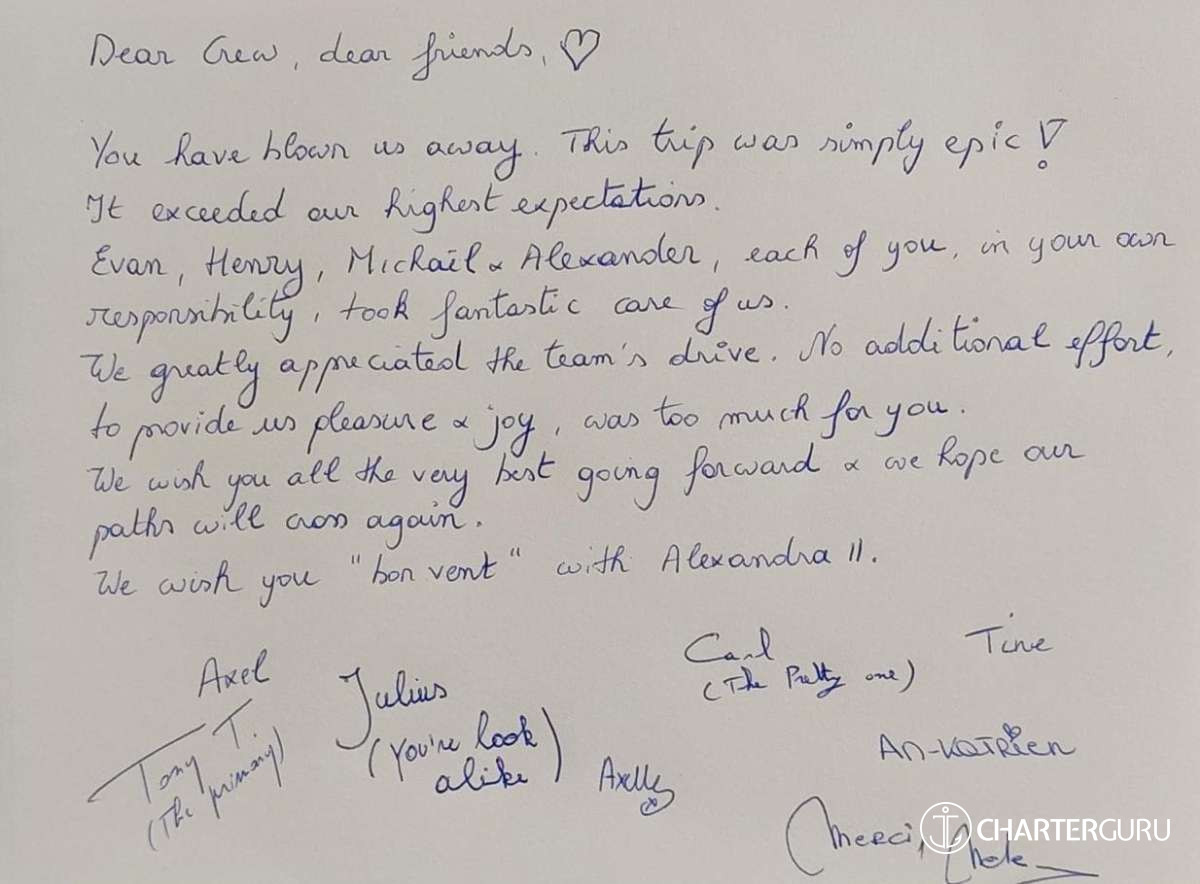 Dear Crew, dear friends, ♡
You have blown us away. This trip was simply epic!
It exceeded our highest expectations.
Evan, Henry, Michaïl & Alexander, each of you, in your own
responsibility, took fantastic care of us.
We greatly appreciated the team's drive. No additional effort,
to provide us pleasure & joy, was too much for you.
We wish you all the very best going forward & we hope our
paths will cross again.
We wish you "bon vent" with Alexandra II.
Axel
Tony T.
(The primary)
Julius
(You're look
alike)
Axelle
Carl
(The Pretty one)
Tine
An-Katrien
Merci,
CHARTERGURU